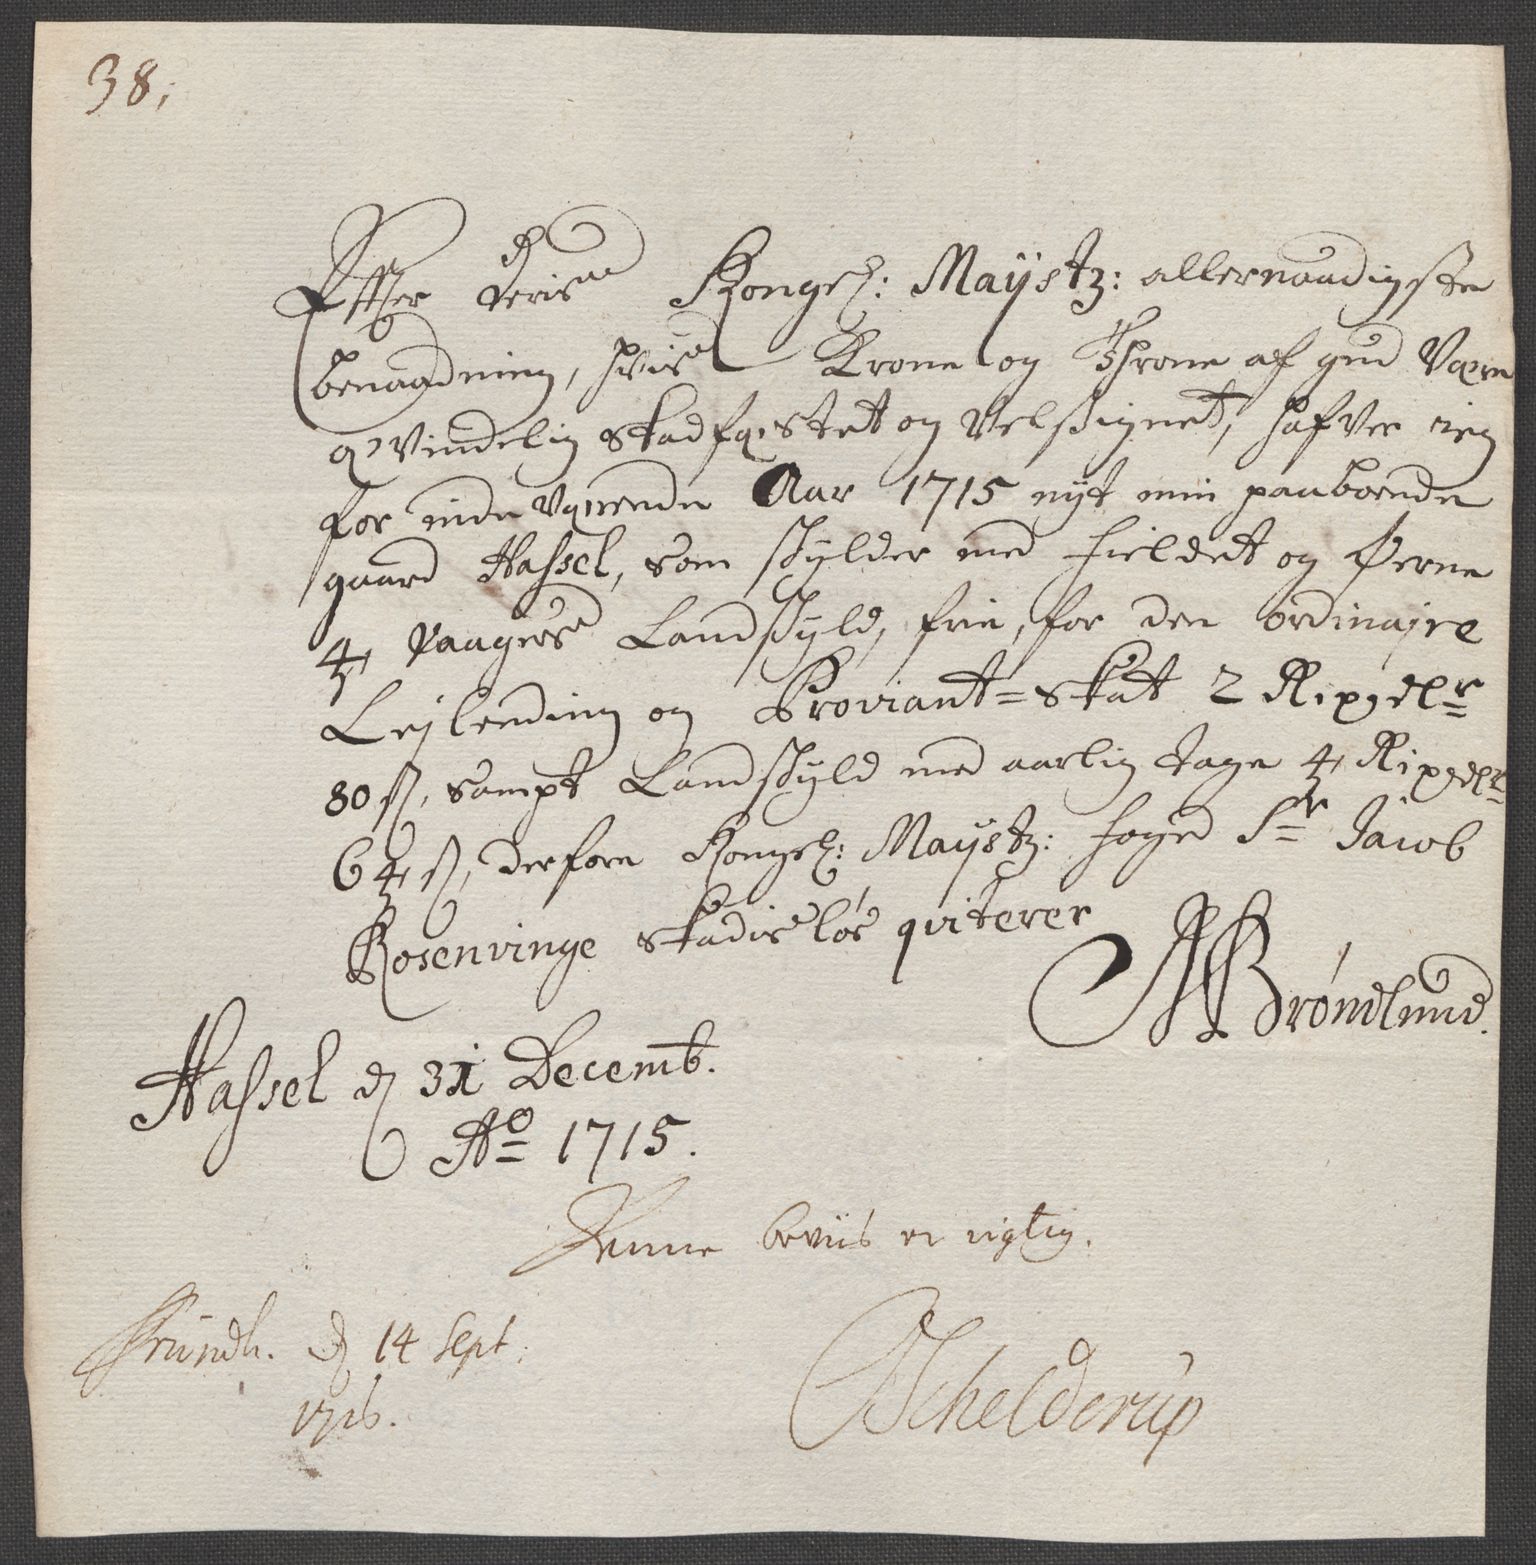 38,
Efter deris Kongel: Maÿstz: allernaadigste
benaadning, hvis Krone og Throne af gud være
uvindelig stadfæstet og velsignet, hafver ieg
for inde værende Aar 1715 nÿt min paaboende
gaard Hassel, som skÿlder med fieldet og Øerne
4 Vaagers Landskÿld, frie, for den ordinajre
Lejlending og Proviant=skat 2 Rixdlr
80 s, sampt Landskÿld med aarlig tage 4 Rixdlr
64 s, derfore Kongel: Maÿstz: foged Sr Jacob
Rosenvinge skadisløs qviterer
Brøndlund.
Hassel d 31 Decemb.
Ao 1715.
Denne beviis er rigtig.
Trundh. d 14 Sept:
1716.
Schelderup